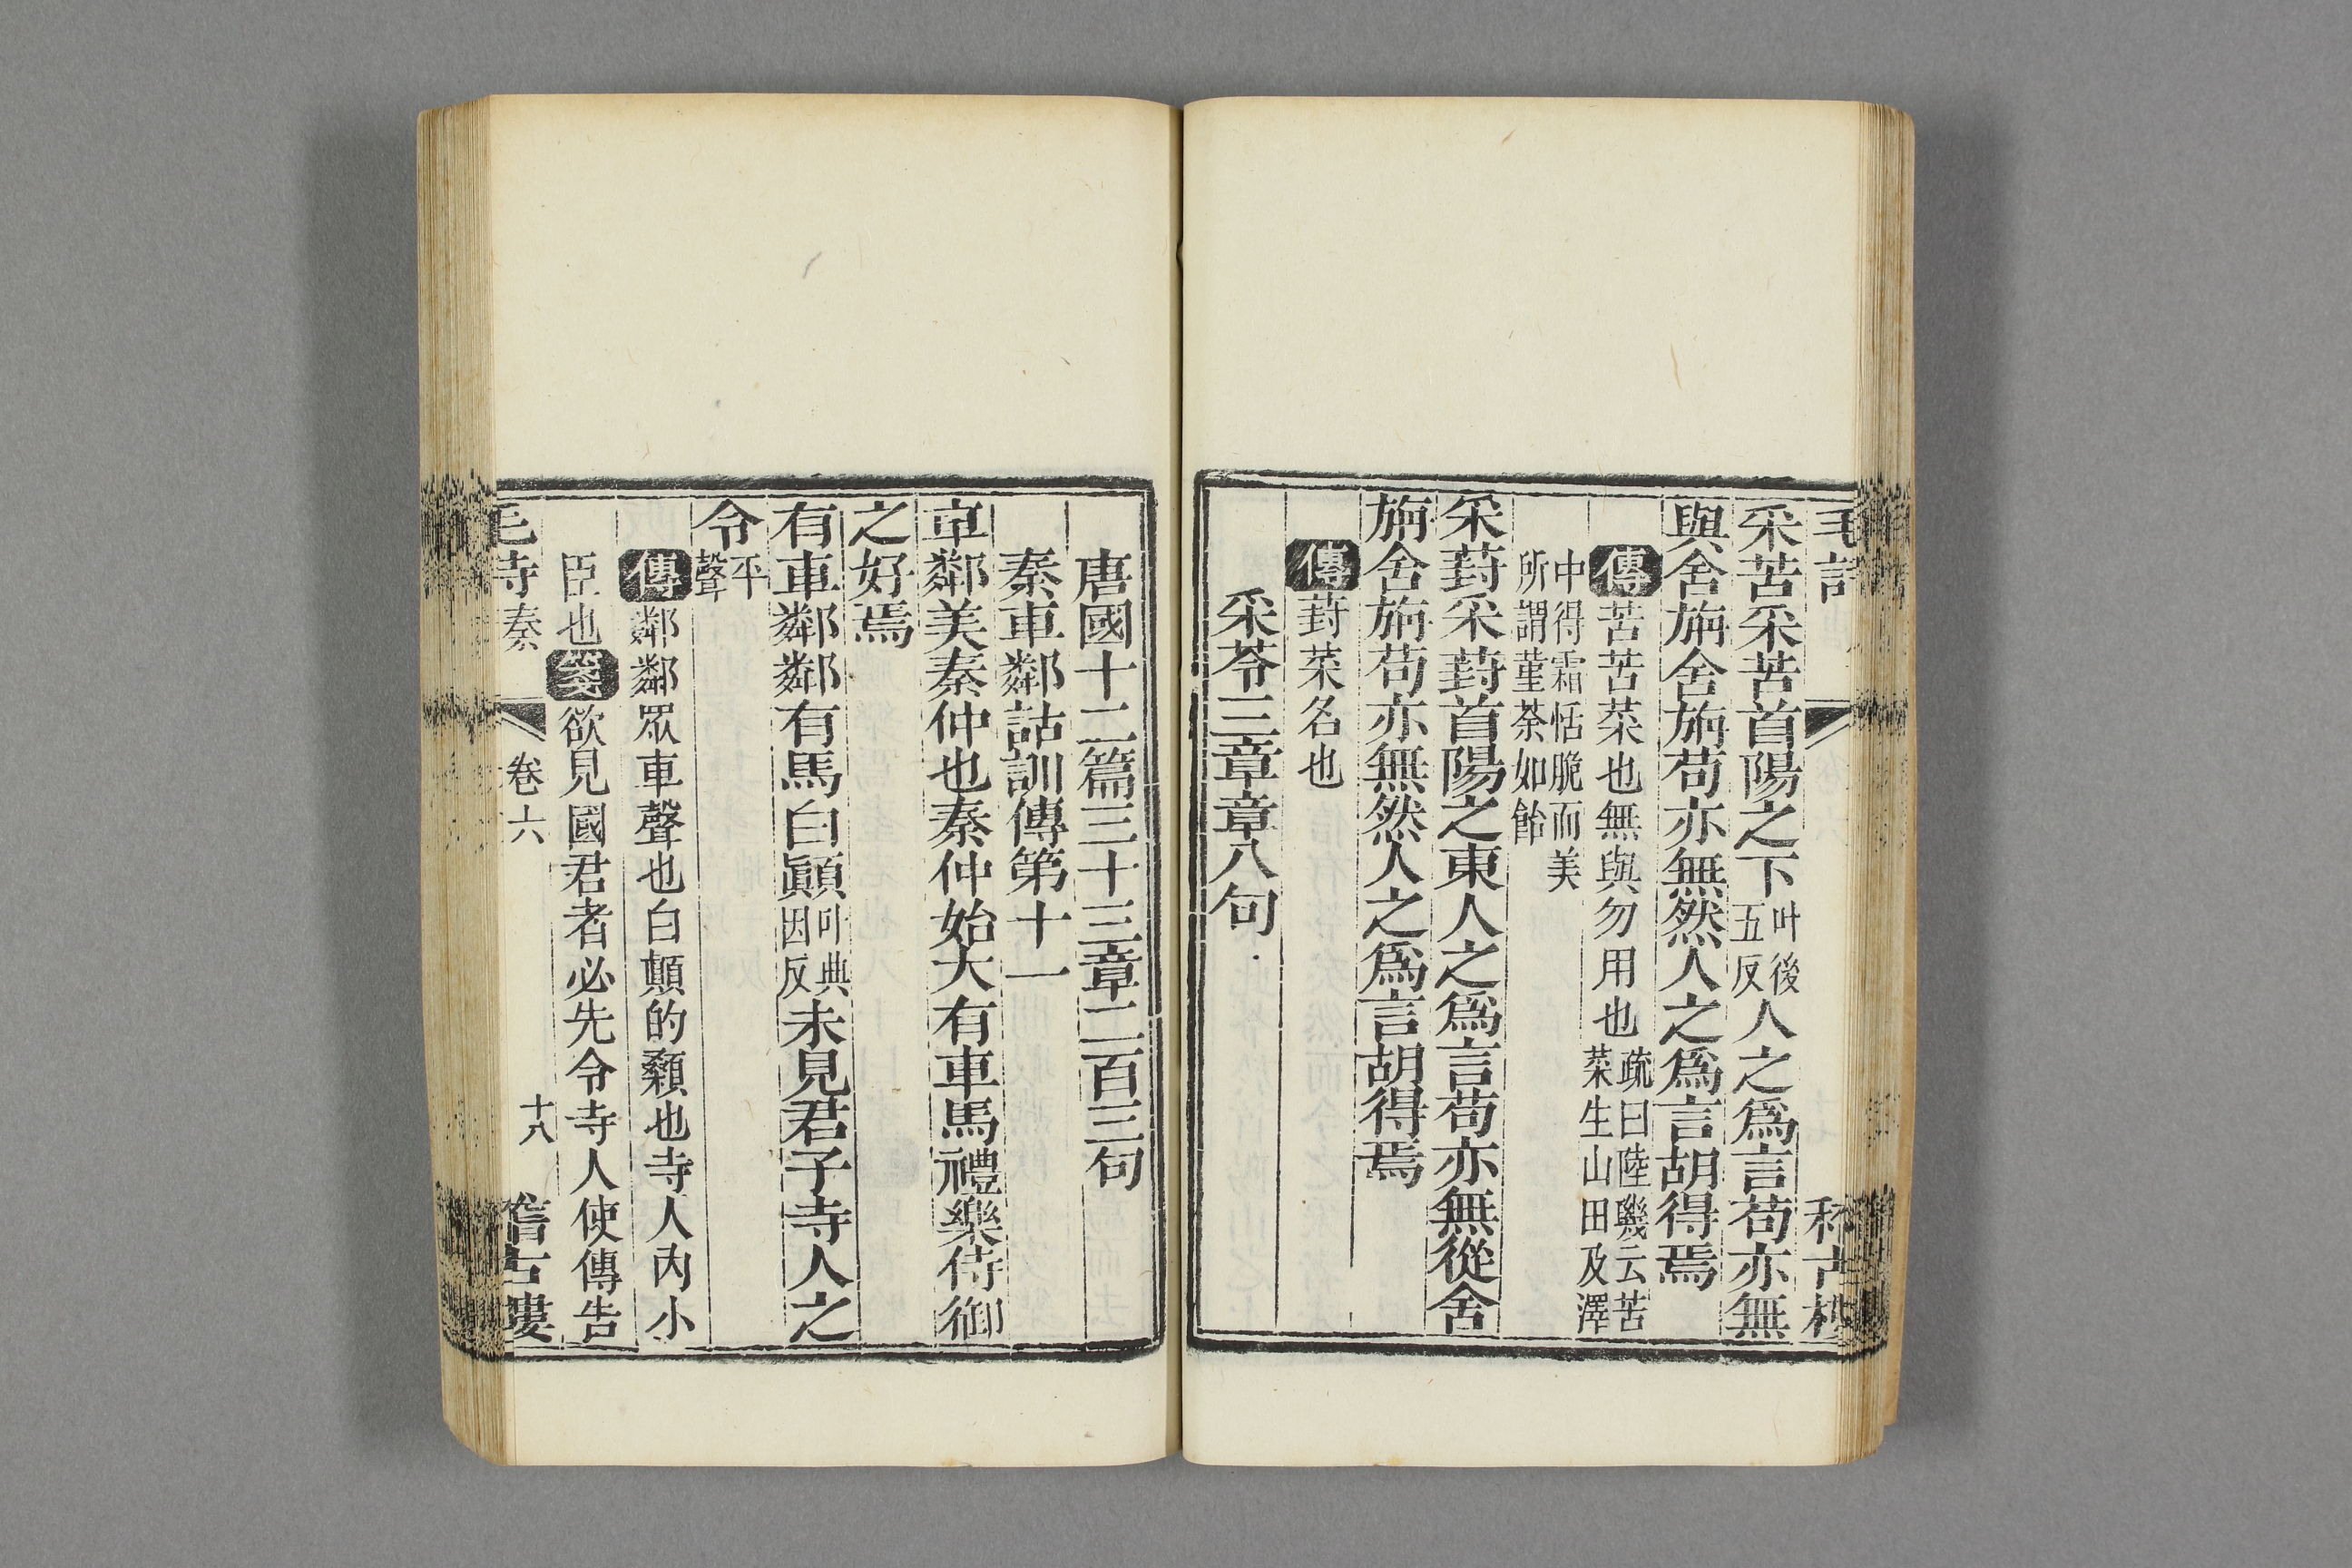 毛詩
采苦采苦首陽之下叶後五反人之爲言苟亦無
與舍旃舍旃苟亦無然人之爲言胡得焉
傳苦苦菜也無與勿用也疏曰陸璣云苦菜生山田及澤
中得霜恬脆而美所謂菫荼如飴
采葑采葑首陽之東人之爲言苟亦無從舍
旃舍旃苟亦無然人之爲言胡得焉
傳葑菜名也
采苓三章章八句
唐國十二篇三十三章二百三句
秦車鄰詁訓傳第十一
車鄰美秦仲也秦仲始大有車馬禮樂侍御
之好焉
有車鄰鄰有馬白顚叶典因反未見君子寺人之
令平聲
傳鄰鄰眾車聲也白顛的顙也寺人內小
臣也箋欲見國君者必先令寺人使傳告
秦 卷六 十八